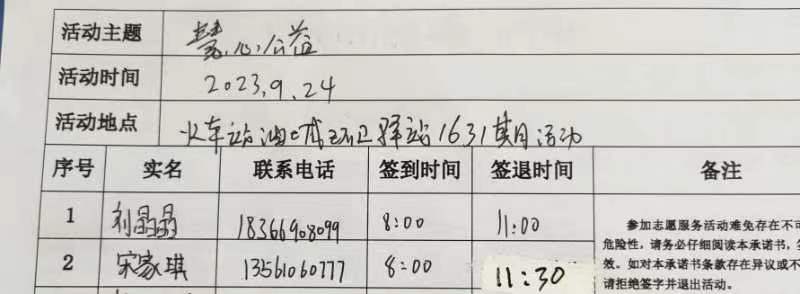 活动主题 慧心公益
活动时间 2023.9.24
活动地点 火车站油城环卫驿站1631期活动
序号 实名 联系电话 签到时间 签退时间 备注
1 刘晶晶 18366908099 8:00 11:00
参加志愿服务活动难免存在不可
危险性，请务必仔细阅读本承诺书，
2 宋家琪 13561060777 8:00 11:30
效。如对本承诺书条款存在异议或不
请拒绝签字并退出活动。